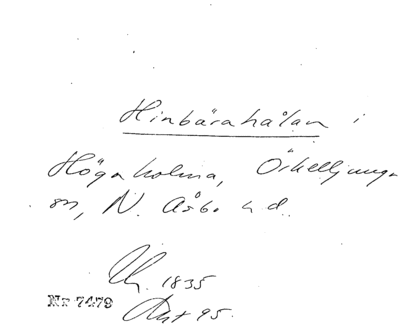 Hinbärahålan i
Högaholma, Örkelljunga
sn, N. Åsbo hd.
1835
Nr 7479
95.